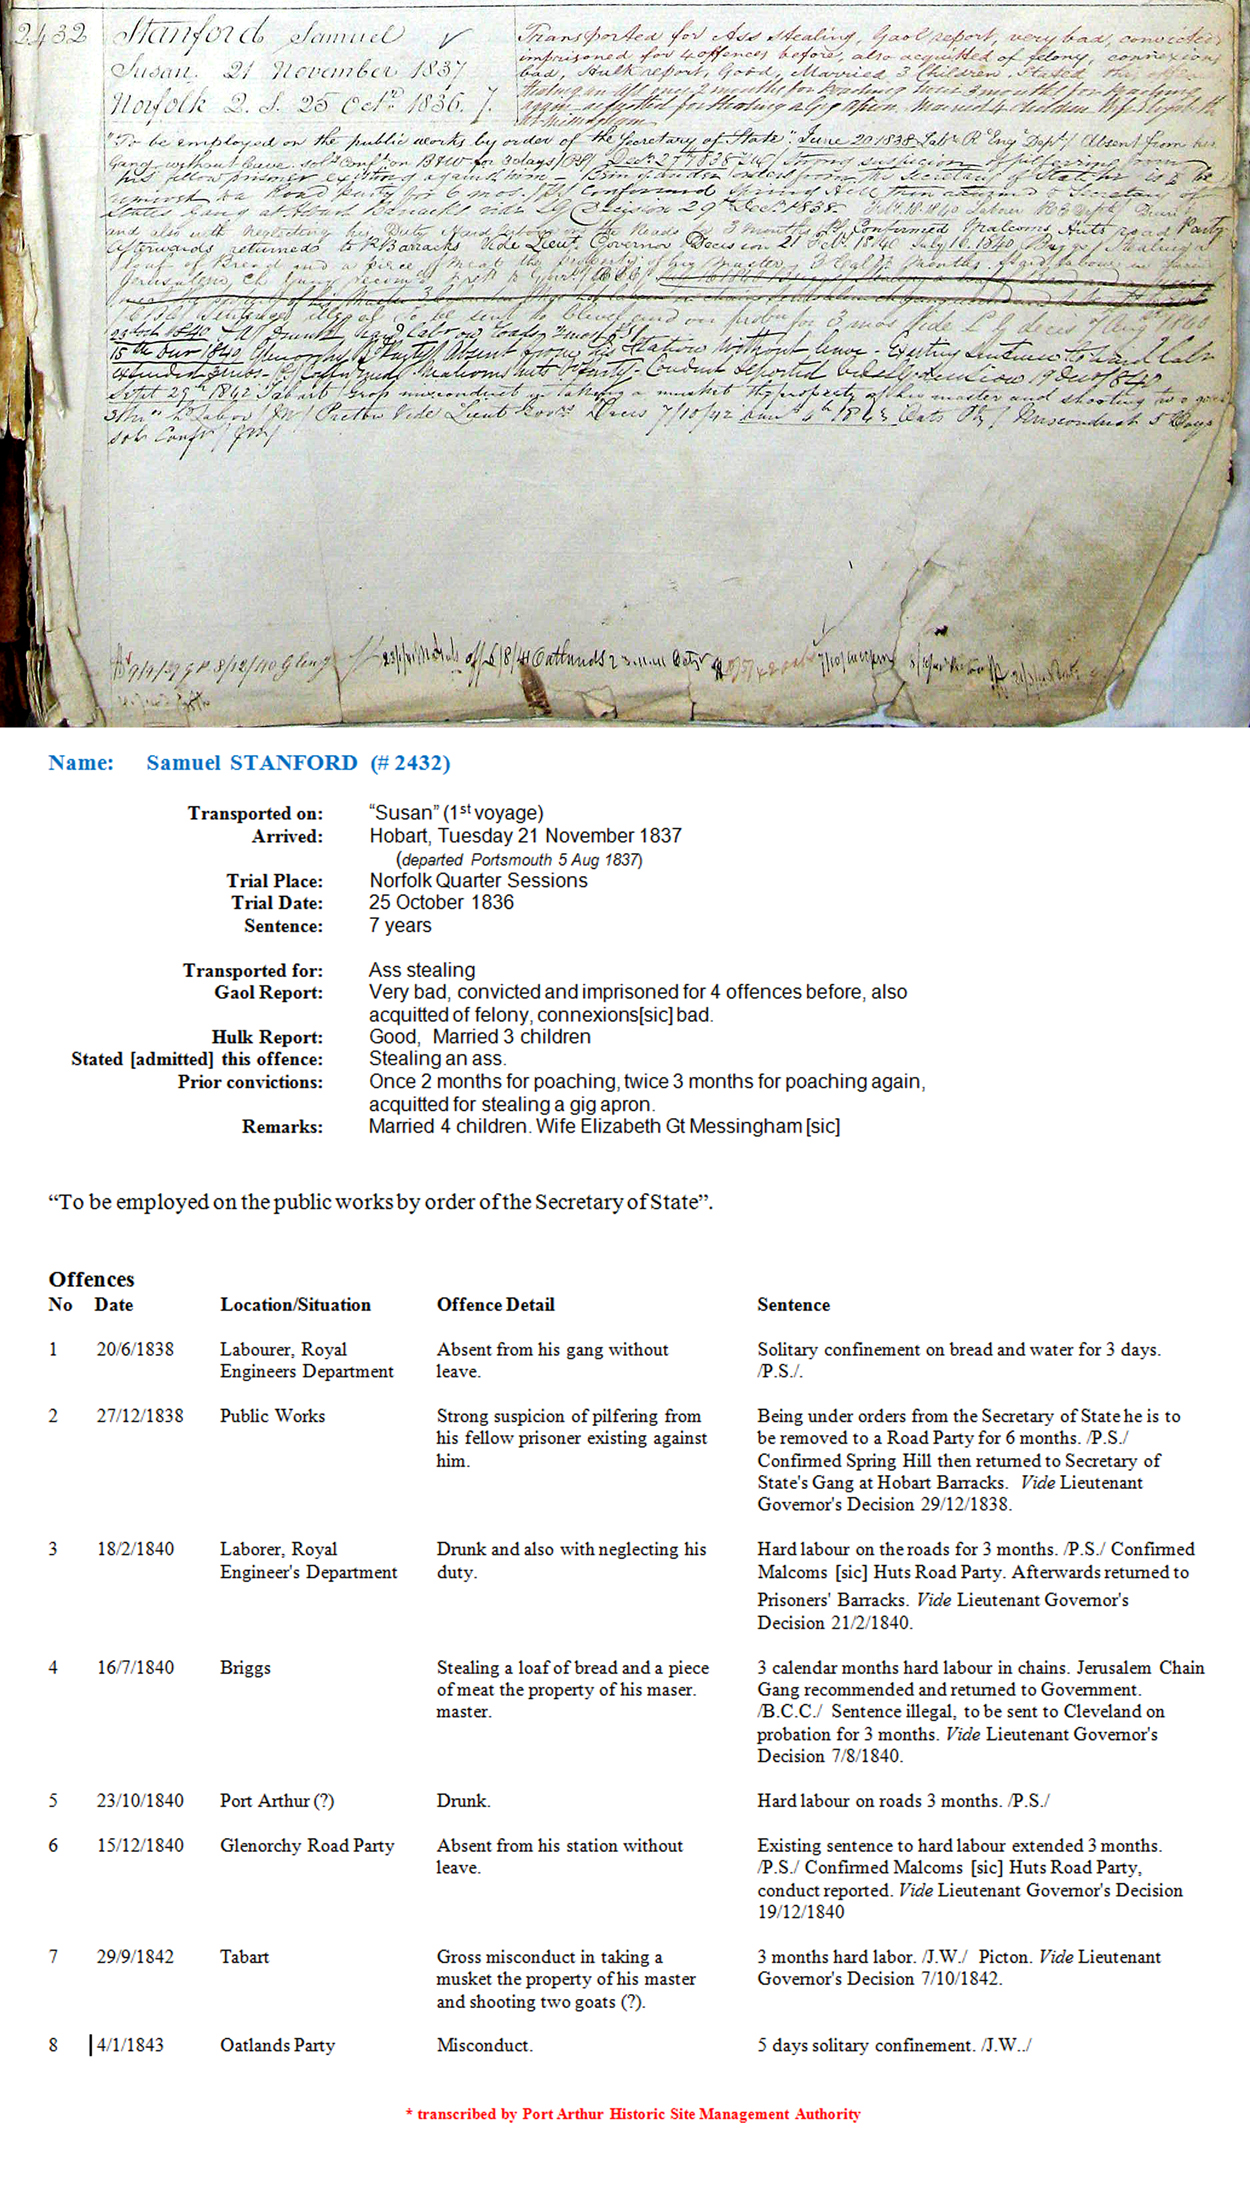 2432 Stanford Samuel
Susan. 21 November 1837
Norfolk Q. S. 25 Octr. 1836. 7.
Transported for Ass stealing, Gaol report, very bad, convicted
imprisoned for 4 offences before, also acquitted of felony, connexions
bad, Hulk report, Good, Married, 3 Children. Stated this offence
stealing an ass once 2 months for poaching twice 3 months for poaching
again acquitted for stealing a gig apron. Married 4 children. Wife
"To be employed on the public works by order of the Secretary of State". June 20 1838 Labr. R. Eng. Dept./ Absent from his
gang without leave sol. conft. on B & W for 3 days /PS/ Decr. 27 1838 strong suspicion of pilfering from
his fellow prisoner existing against him - Being under orders from the Secretary of State he is to be
removed to a Road Party for 6 mos. /PS/ Confirmed Spring Hill then returned to Secretary of
States Gang at Hobart Barracks vide L G Decision 29 Decr. 1838. Feby. 18. 1840 Laborer R E Dept. / Drunk
and also with neglecting his Duty Hard Labour on the Roads for 3 months /PS/ Confirmed Malcoms Huts road Party
Afterwards returned to P. Barracks Vide Lieut. Governor Decision 21 Feby. 1840 July 16. 1840 Briggs / Stealing a
loaf of Bread and a piece of Meat the property of his master 3 Cal. months Hard labour in chains
Jerusalem Ch. Gang
Sentence illegal to be sent to Cleveland on probn. for 3 mos. Vide L G decis. 7 Aug 1840
23 Octr. 1840 Drunk Hard Labr. on Roads 3 mos /PS/
15th Decr. 1840 Glenorchy R Party / Absent from his Station without leave - Existing sentence to hard Labr.
extended 3 mos. /PS/ Confirmed Malcoms Huts R Party - Conduct reported Vide decision 19 Decr. 1840
Septr. 29th 1842 Tabart / Gross misconduct in taking a musket the property of his master and shooting two
3 Mo. hd Labor /JW/ Picton Vide Lieut Govrs. Decis 7/10/42 Jany. 4th 1843 Oats Pty / Misconduct 5 Days
sol. Conft. /JW/
Name: Samuel STANFORD (# 2432)
Transported on: “Susan” (1st voyage)
Arrived: Hobart, Tuesday 21 November 1837
(departed Portsmouth 5 Aug 1837)
Trial Place: Norfolk Quarter Sessions
Trial Date: 25 October 1836
Sentence: 7 years
Transported for: Ass stealing
Gaol Report: Very bad, convicted and imprisoned for 4 offences before, also
acquitted of felony, connexions[sic] bad.
Hulk Report: Good, Married 3 children
Stated [admitted] this offence: Stealing an ass.
Prior convictions: Once 2 months for poaching, twice 3 months for poaching again,
acquitted for stealing a gig apron.
Remarks: Married 4 children. Wife Elizabeth Gt Messingham [sic]
“To be employed on the public works by order of the Secretary of State”.
Offences
No Date Location/Situation Offence Detail Sentence
1 20/6/1838 Labourer, Royal Absent from his gang without Solitary confinement on bread and water for 3 days.
Engineers Department leave. /P.S./.
2 27/12/1838 Public Works Strong suspicion of pilfering from Being under orders from the Secretary of State he is to
his fellow prisoner existing against be removed to a Road Party for 6 months. /P.S./
him. Confirmed Spring Hill then returned to Secretary of
State's Gang at Hobart Barracks. Vide Lieutenant
Governor's Decision 29/12/1838.
3 18/2/1840 Laborer, Royal Drunk and also with neglecting his Hard labour on the roads for 3 months. /P.S./ Confirmed
Engineer's Department duty. Malcoms [sic] Huts Road Party. Afterwards returned to
Prisoners' Barracks. Vide Lieutenant Governor's
Decision 21/2/1840.
4 16/7/1840 Briggs Stealing a loaf of bread and a piece 3 calendar months hard labour in chains. Jerusalem Chain
of meat the property of his maser. Gang recommended and returned to Government.
master. /B.C.C./ Sentence illegal, to be sent to Cleveland on
probation for 3 months. Vide Lieutenant Governor's
Decision 7/8/1840.
5 23/10/1840 Port Arthur (?) Drunk. Hard labour on roads 3 months. /P.S./
6 15/12/1840 Glenorchy Road Party Absent from his station without Existing sentence to hard labour extended 3 months.
leave. /P.S./ Confirmed Malcoms [sic] Huts Road Party,
conduct reported. Vide Lieutenant Governor's Decision
19/12/1840
7 29/9/1842 Tabart Gross misconduct in taking a 3 months hard labor. /J.W./ Picton. Vide Lieutenant
musket the property of his master Governor's Decision 7/10/1842.
and shooting two goats (?).
8 4/1/1843 Oatlands Party Misconduct. 5 days solitary confinement. /J.W../
* transcribed by Port Arthur Historic Site Management Authority